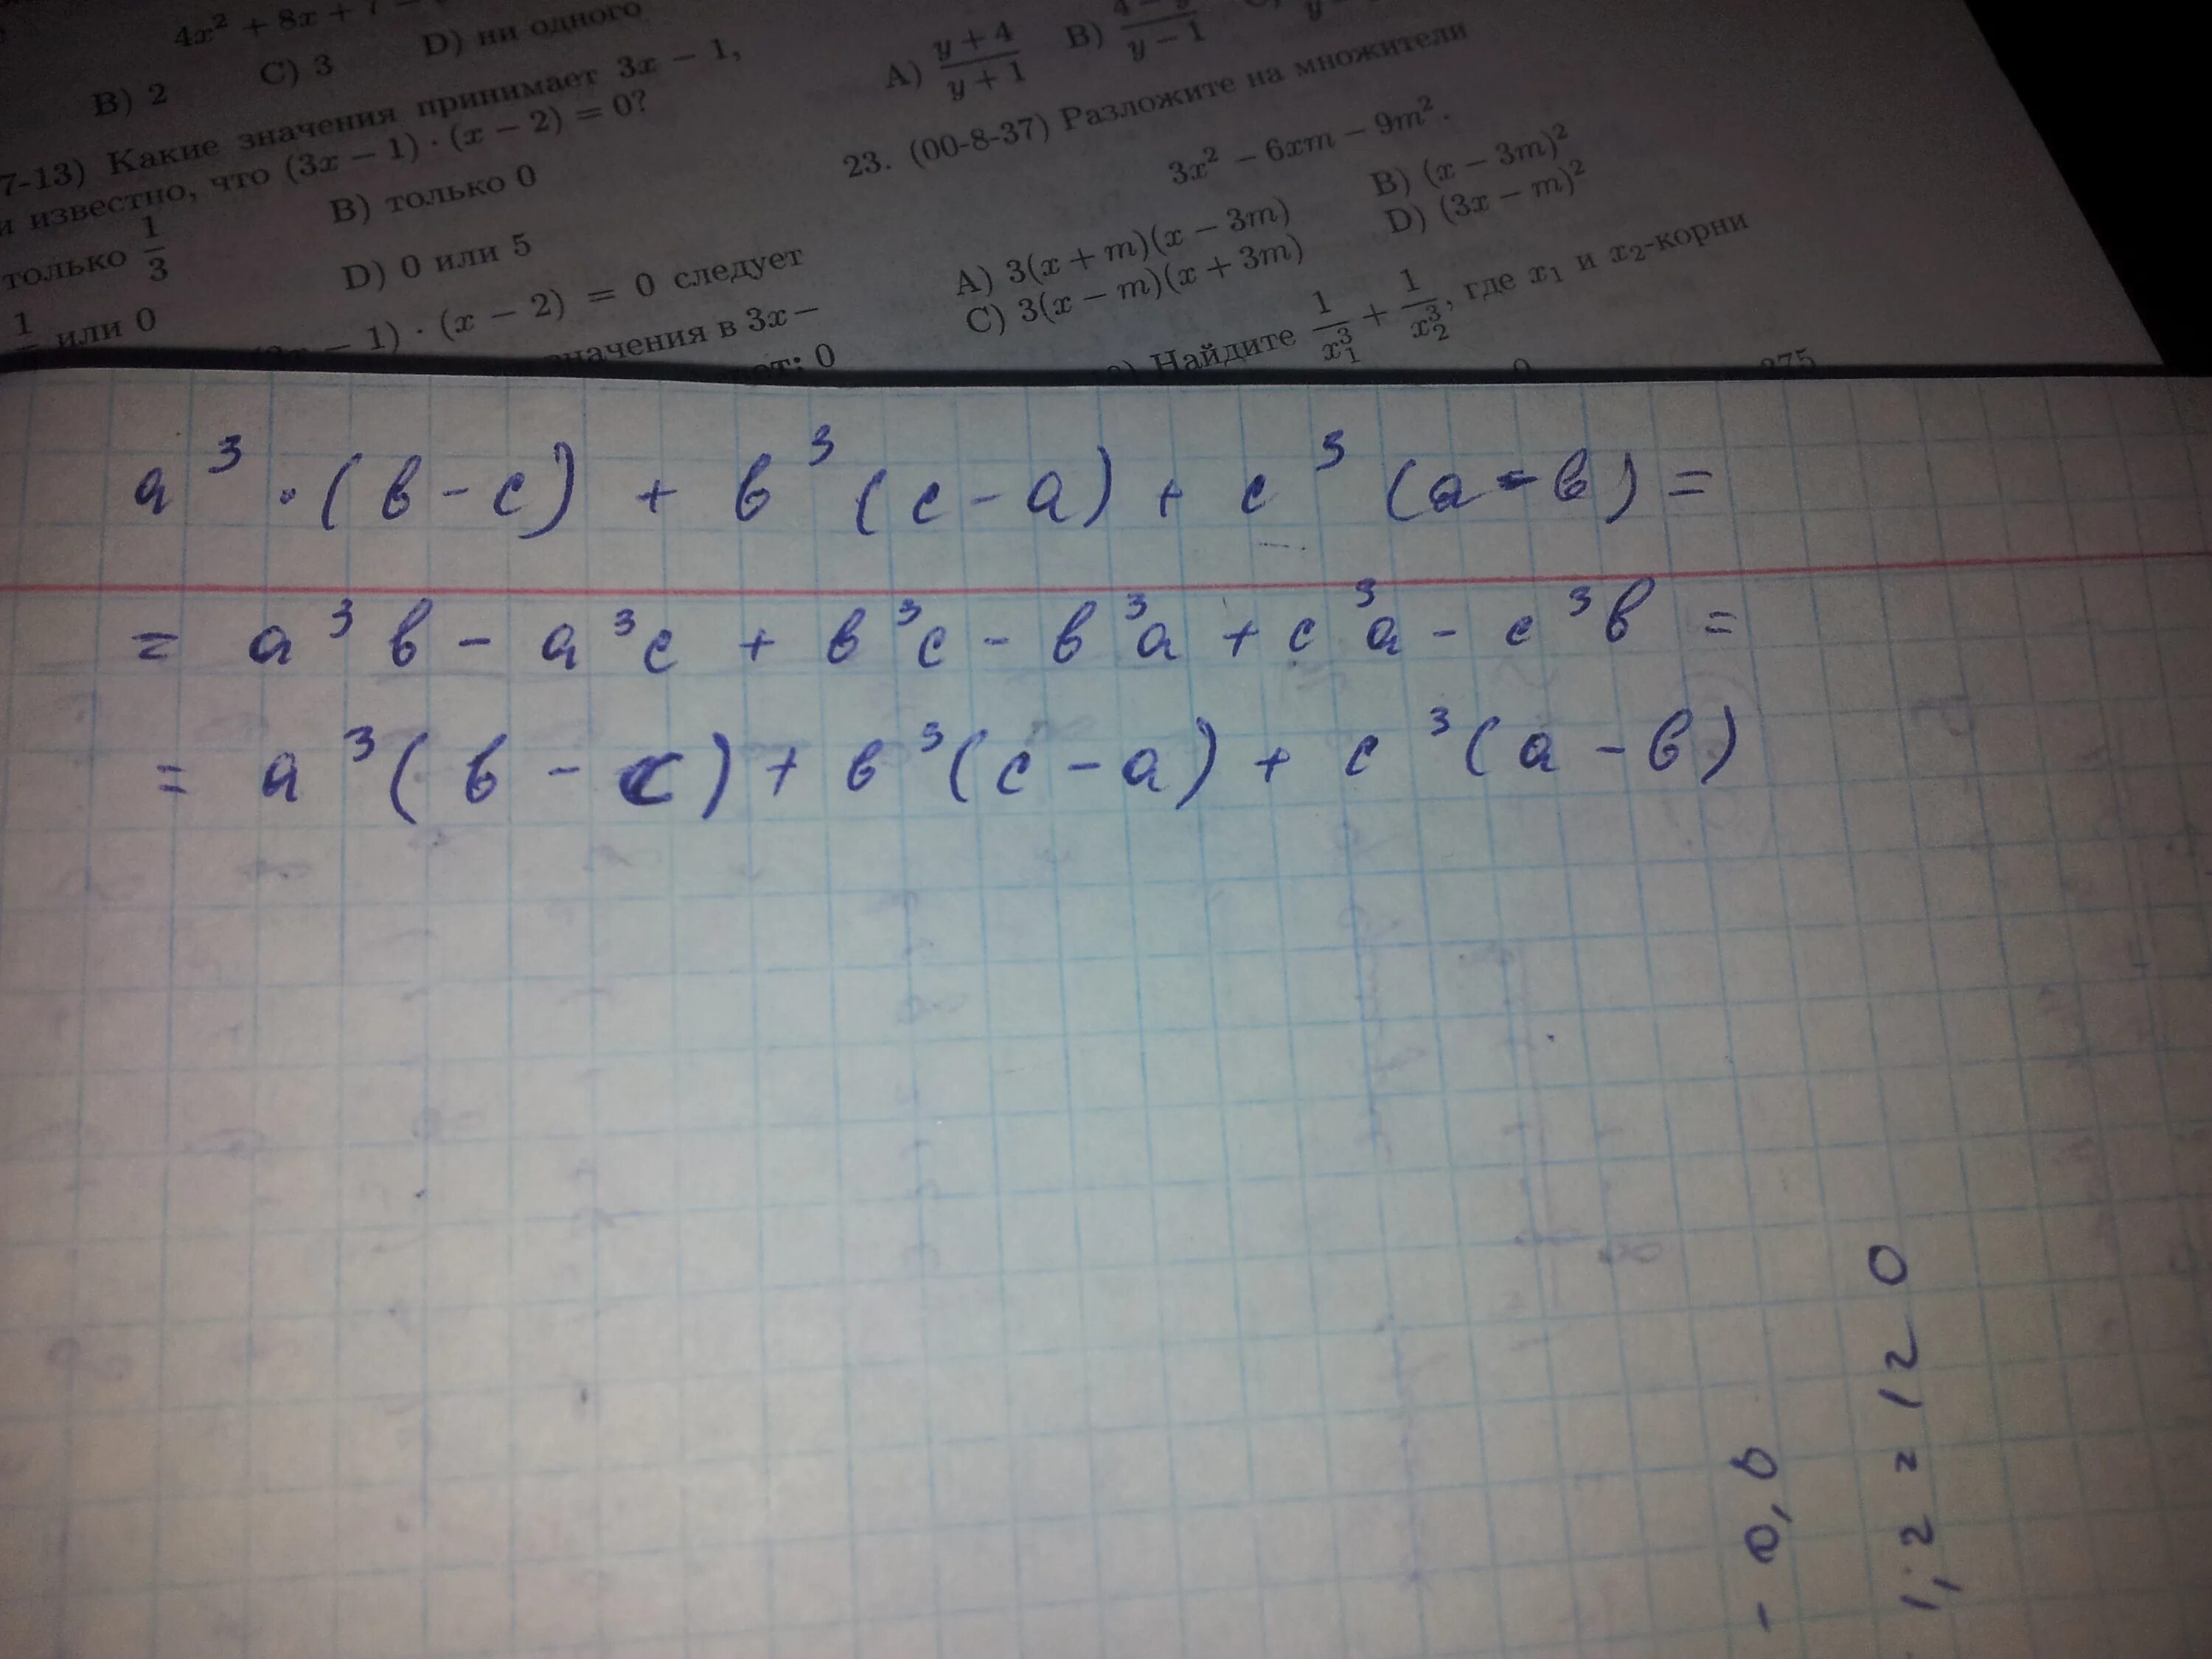 4x² + 8x + 7
B) 2 C) 3 D) ни одного
7-13) Какие значения принимает 3x − 1,
и известно, что (3x − 1) · (x − 2) = 0?
только 1/3 B) только 0
или 0 D) 0 или 5
− 1) · (x − 2) = 0 следует
значения в 3x −
0
A) (y + 4)/(y + 1) B) y − 1
23. (00-8-37) Разложите на множители
3x² − 6xm − 9m².
A) 3(x + m)(x − 3m) B) (x − 3m)²
C) 3(x − m)(x + 3m) D) (3x − m)²
Найдите 1/x₁³ + 1/x₂³, где x₁ и x₂-корни
375
a³·(в-с) + в³(с-а) + с³(а-в) =
= а³в - а³с + в³с - в³а + с³а - с³в =
= а³(в - с) + в³(с - а) + с³(а - в)